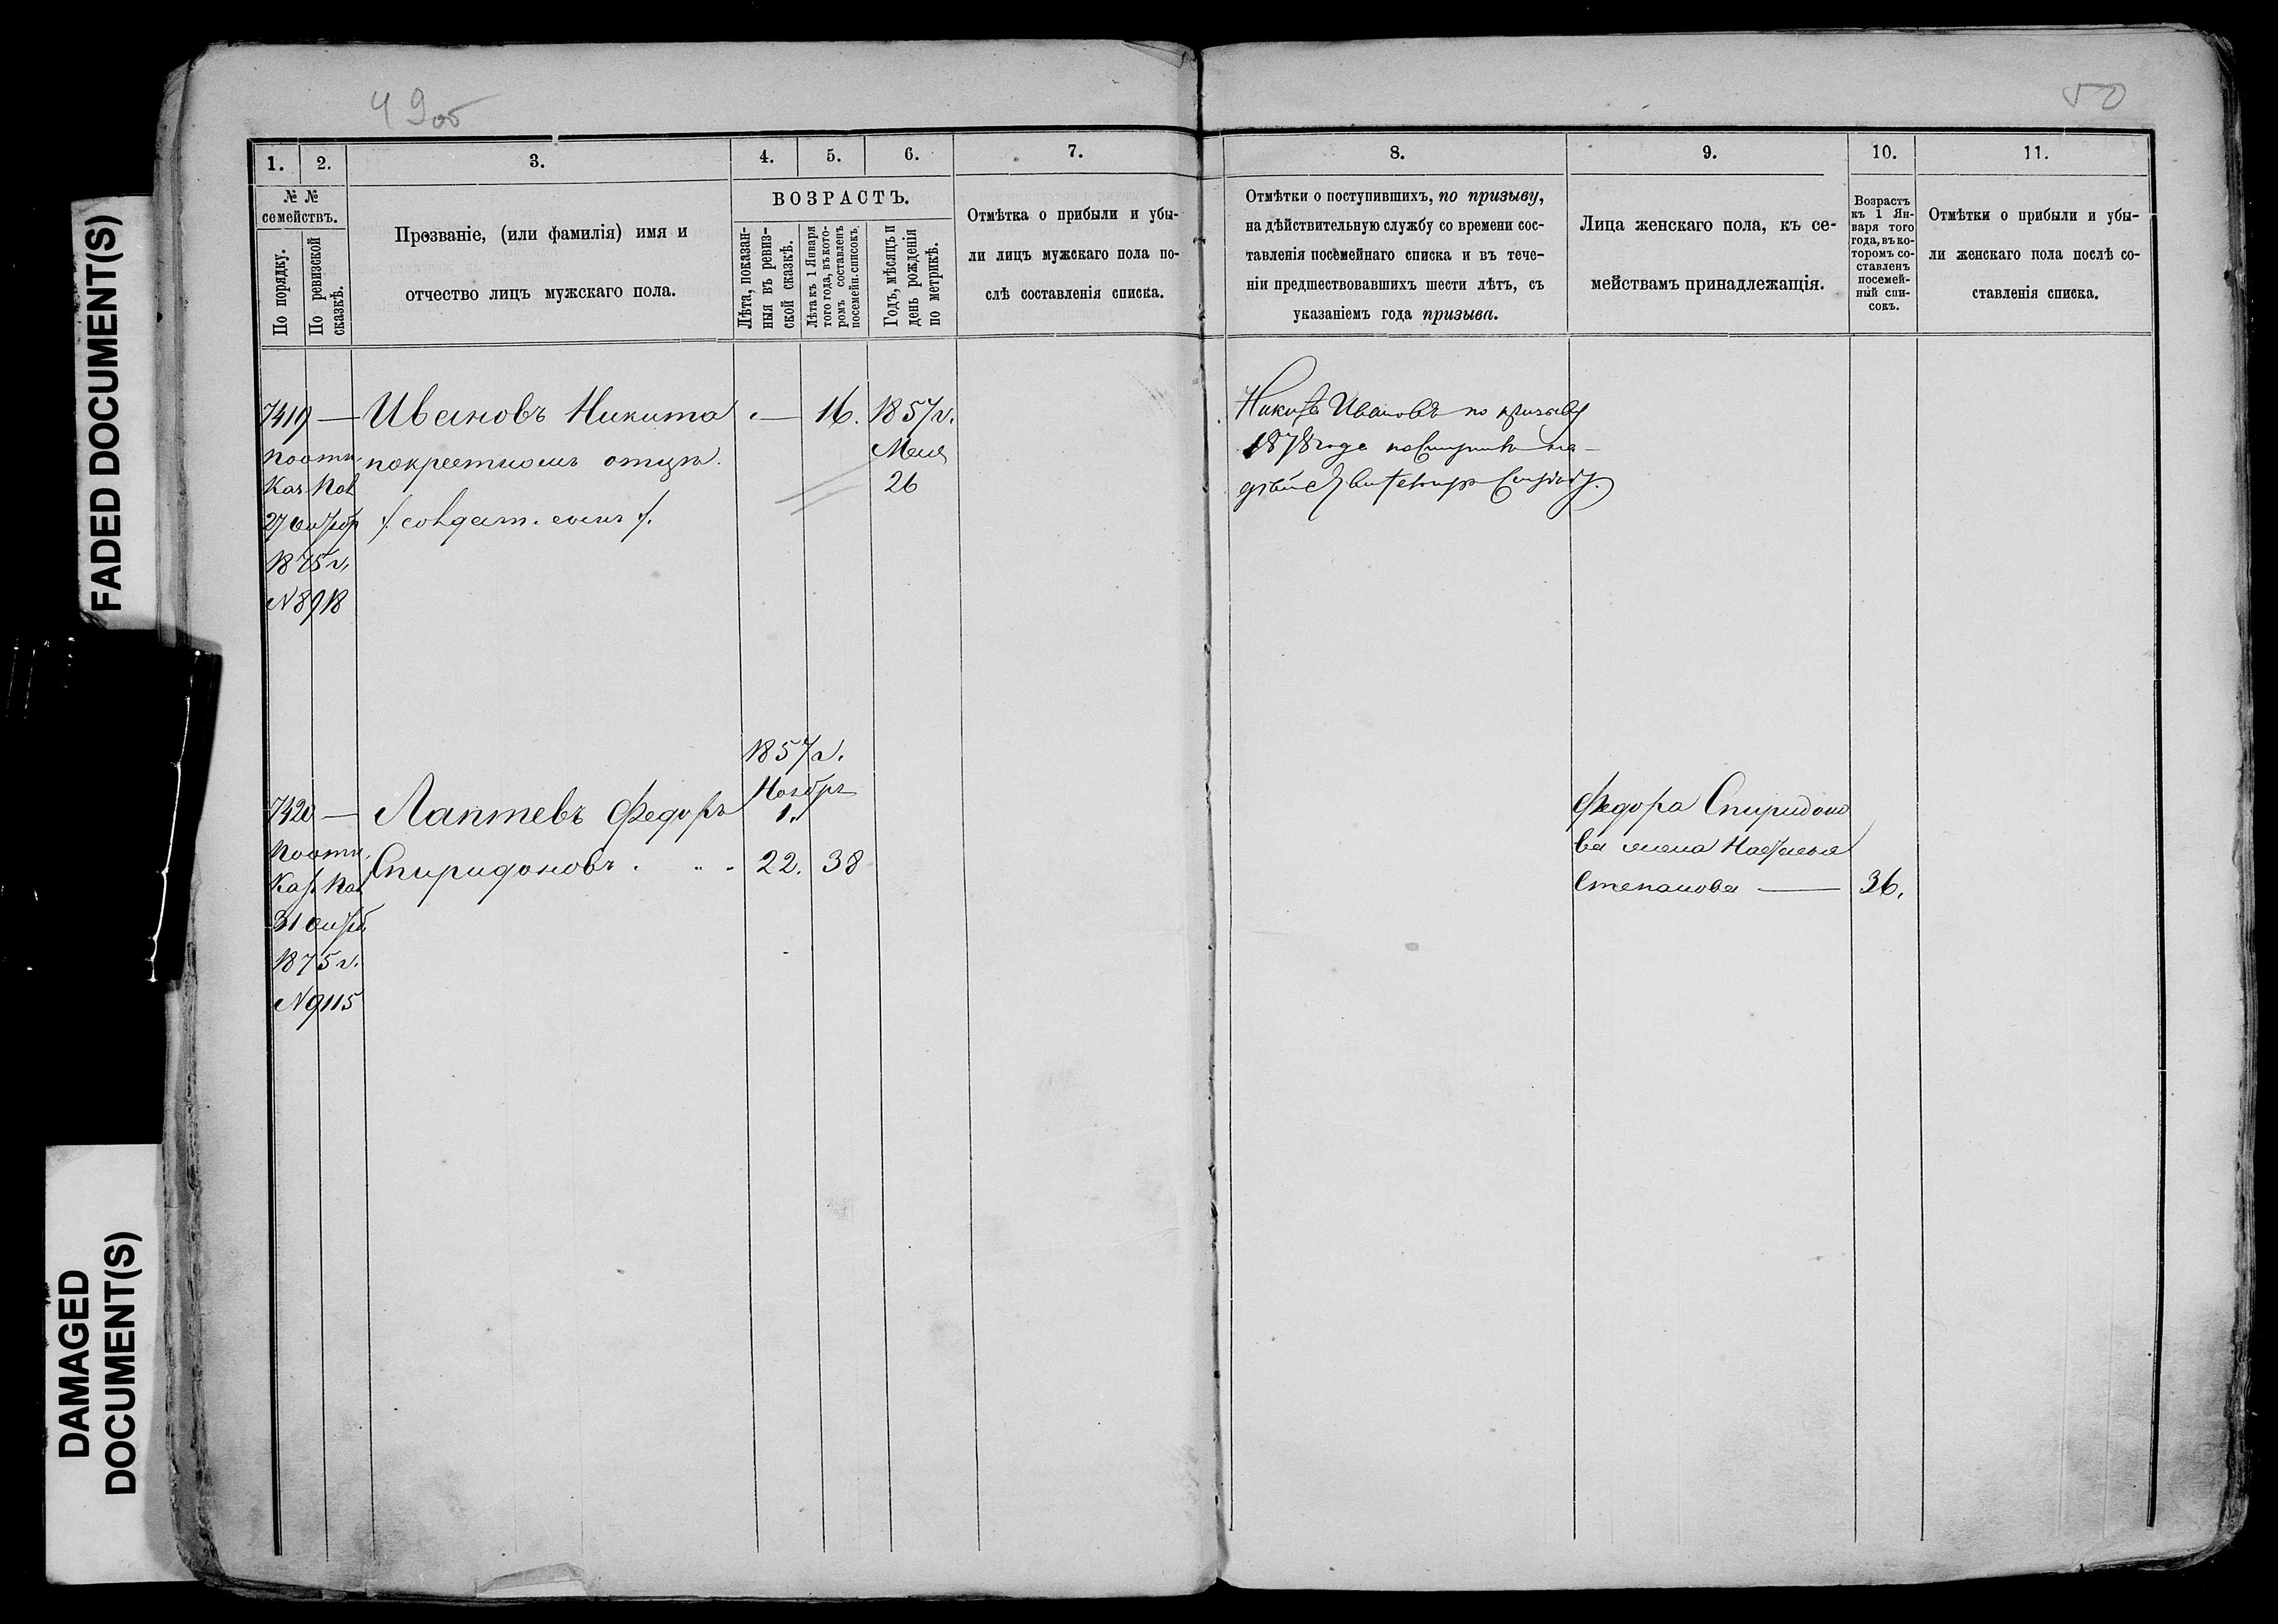 FADED DOCUMENT(S)
DAMAGED
DOCUMENT(S)
49об
50
1. 2. 3. 4. 5. 6. 7. 8. 9. 10. 11.
№ №
семействъ.
По порядку.
По ревизской
сказкѣ.
Прозваніе, (или фамилія) имя и
отчество лицъ мужскаго пола.
ВОЗРАСТЪ.
Лѣта, показан-
ныя въ ревиз-
ской сказкѣ.
Лѣта къ 1 Января
того года, въ кото-
ромъ составленъ
посемейн. списокъ.
Годъ, мѣсяцъ и
день рожденія
по метрикѣ.
Отмѣтка о прибыли и убы-
ли лицъ мужскаго пола по-
слѣ составленія списка.
Отмѣтки о поступившихъ, по призыву,
на дѣйствительную службу со времени сос-
тавленія посемейнаго списка и въ тече-
ніи предшествовавшихъ шести лѣтъ, съ
указаніемъ года призыва.
Лица женскаго пола, къ се-
мействамъ принадлежащія.
Возрастъ
къ 1 Ян-
варя того
года, въ ко-
торомъ со-
ставленъ
посемей-
ный спи-
сокъ.
Отмѣтки о прибыли и убы-
ли женскаго пола послѣ со-
ставленія списка.
7419 — Ивановъ Никита — 16. 1857 г.
покрестномъ отцѣ. Мая
26
27 октяб
/. солдат. сынъ ./
1875 г.
№ 8918
Никита Ивановъ по призыву
1878 года поступилъ на
дѣйствительную службу.
1857 г.
Ноября
1.
7420 — Лаптевъ Федоръ
Спиридоновъ . . . 22. 38
31 октяб
1875 г.
№ 9115
Федора Спиридоно
ва жена Настасья
Степанова — 36.